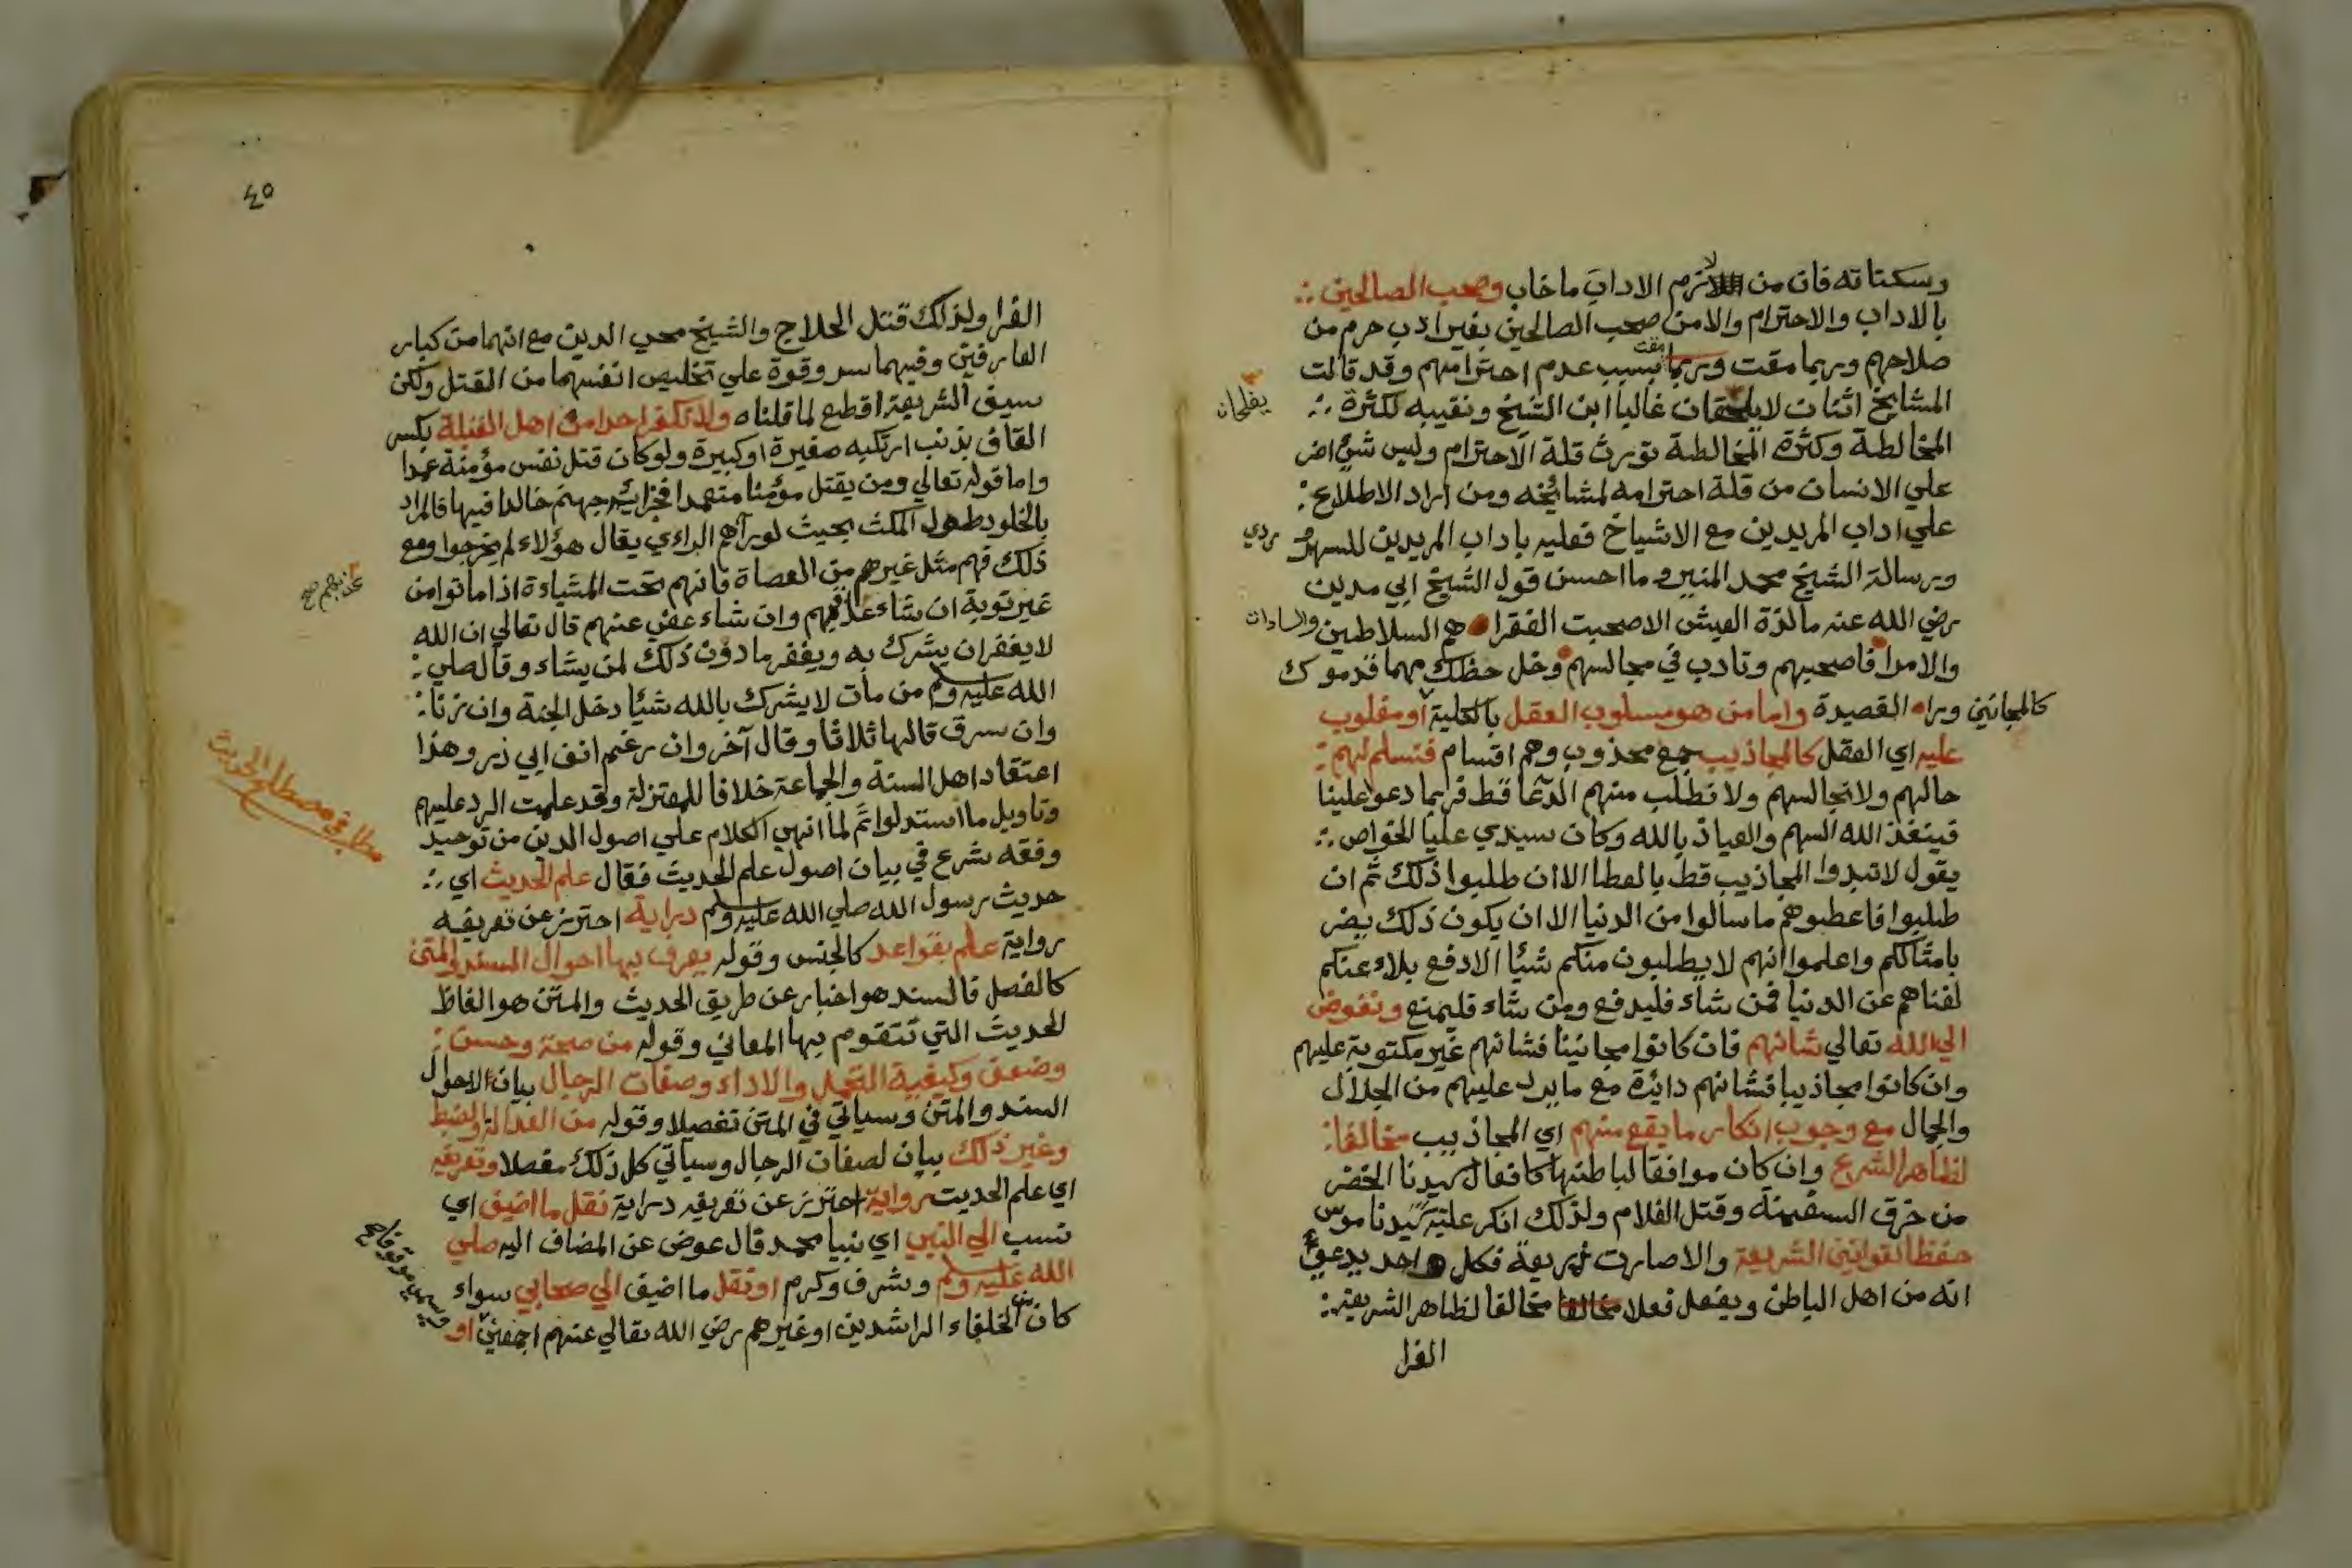 وسكناته فان من لازم الاداب ما خاب وصحب الصالحين
بالاداب والاحترام والا من صحب الصالحين بغير ادب حرم من
صلاحهم وربما مقت بسبب عدم احترامهم وقد قالت
المشايخ اثنان لا يفلحان غالبا ابن الشيخ ونقيبه لكثرة
المخالطة وكثرة المخالطة تورث قلة الاحترام وليس شئ اضر
علي الانسان من قلة احترامه لمشائخه ومن اراد الاطلاع
علي اداب المريدين مع الاشياخ فعليه باداب المريدين للسهروردي
ورسالة الشيخ محمد المنير وما احسن قول الشيخ ابي مدين
رضي الله عنه ما لذة العيش الا صحبت الفقرا هم السلاطين والسادات
والامرا فاصحبهم وتادب في مجالسهم وخل حظك مهما قدموك
وراء القصيدة واما من هو مسلوب العقل بالكلية كالمجانين او مغلوب
عليه اي العقل كالمجاذيب جمع مجذوب وهم اقسام فنسلم لهم
حالهم ولا نجالسهم ولا نطلب منهم الدعا قط فربما دعوا علينا
فينفذ الله السهم والعياذ بالله وكان سيدي عليا الخواص
يقول لا تبدوا المجاذيب قط بالعطا الا ان طلبوا ذلك ثم ان
طلبوا فاعطوهم ما سالوا من الدنيا الا ان يكون ذلك يضر
بامثالكم واعلموا انهم لا يطلبون منكم شيئا الا دفع بلاء عنكم
لغناهم عن الدنيا فمن شاء فليدفع ومن شاء فليمنع ونفوض
الي الله تعالي شانهم فان كانوا مجانينا فشانهم غير مكتوبة عليهم
وان كانوا مجاذيبا فشانهم دائرة مع ما يرد عليهم من الجلال
والجمال مع وجوب انكار ما يقع منهم اي المجاذيب مخالفا
لظاهر الشرع وان كان موافقا لباطنها كافعال سيدنا الخضر
من خرق السفينة وقتل الغلام ولذلك انكر عليه سيدنا موسي
حفظا لقوانين الشريعة والا صارت ذريعة فكل واحد يدعي
انه من اهل الباطن ويفعل فعلا مخالفا لظاهر الشريعة
الغرا
٤٥
الغرا ولذلك قتل الحلاج والشيخ محي الدين مع انهما من كبار
العارفين وفيهما سر وقوة علي تخليص انفسهما من القتل ولكن
سيف الشريعة اقطع لما قلناه ولا نكفر احدا من اهل القبلة بكسر
القاف بذنب ارتكبه صغيرة او كبيرة ولو كان قتل نفس مؤمنة عمدا
واما قوله تعالي ومن يقتل مؤمنا متعمدا فجزاؤه جهنم خالدا فيها فالمراد
بالخلود طول المكث بحيث لو رآهم الراءي يقال هؤلاء لم يخرجوا ومع
ذلك فهم مثل غيرهم من العصاة فانهم تحت المشياءة اذا ماتوا من
غير توبة ان شاء عذبهم وان شاء عفي عنهم قال تعالي ان الله
لا يغفر ان يشرك به ويغفر ما دون ذلك لمن يشاء وقال صلي
الله عليه وسلم من مات لا يشرك بالله شيئا دخل الجنة وان زنا
وان سرق قالها ثلاثا وقال آخر وان رغم انف ابي ذر وهذا
اعتقاد اهل السنة والجماعة خلافا للمعتزلة وقد علمت الرد عليهم
وتاويل ما استدلوا ثم لما انهي الكلام علي اصول الدين من توحيد
وفقه شرع في بيان اصول علم الحديث فقال علم الحديث اي
حديث رسول الله صلي الله عليه وسلم دراية احترز عن تعريفه
رواية علم بقواعد كالجنس وقوله يعرف بها احوال السند والمتن
كالفصل فالسند هو اخبار عن طريق الحديث والمتن هو الفاظ
الحديث التي تتقوم بها المعاني وقوله من صحة وحسن
وضعف وكيفية التحمل والاداء وصفات الرجال بيان لاحوال
السند والمتن وسياتي في المتن تفصيلا وقوله من العدالة والضبط
وغير ذلك بيان لصفات الرجال وسياتي كل ذلك مفصلا وتعريفه
اي علم الحديث رواية احترز عن تعريفه دراية نقل ما اضيف اي
نسب الي النبي اي نبيا محمد فال عوض عن المضاف اليه صلي
الله عليه وسلم وشرف وكرم او نقل ما اضيف الي صحابي سواء
كان من الخلفاء الراشدين او غيرهم رضي الله تعالي عنهم اجمعين او
يفلحان
عذبهم صح
مطلب في مصطلح الحديث
ويسمي موقوفا صح